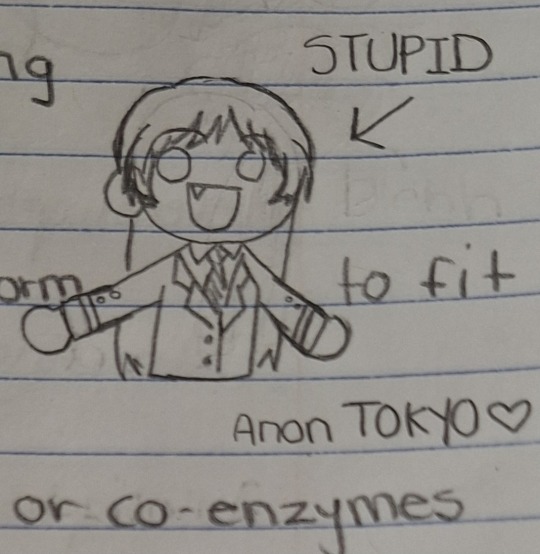 ng
STUPID
orm to fit
Anon TOKYO♡
or co-enzymes